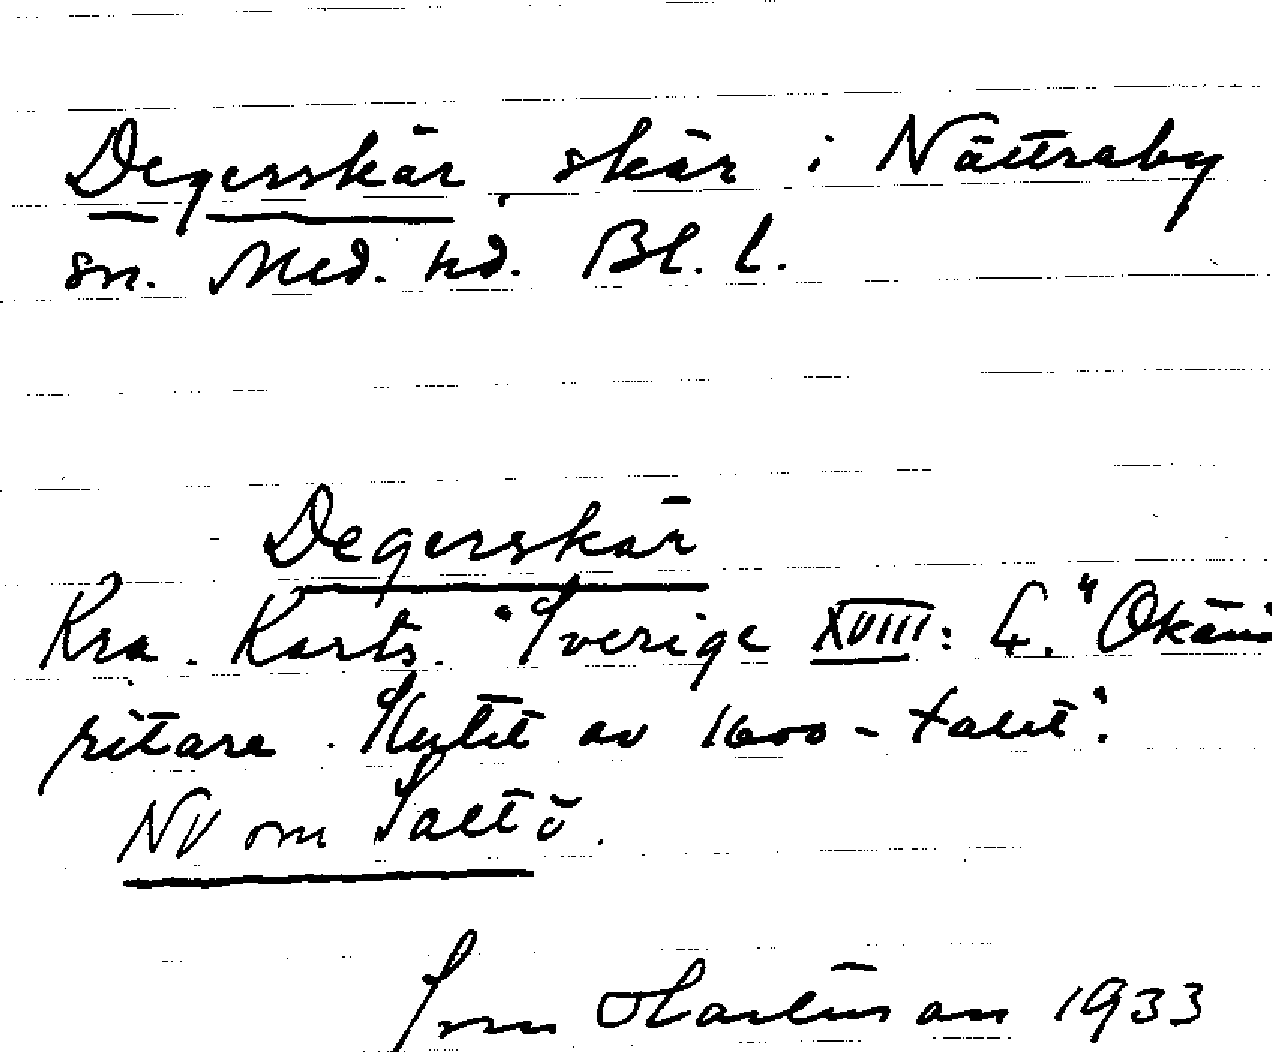 Degerskär, skär i Nättraby
sn. Med. hd. Bl. l.
Degerskär
Kra. Karts. "Sverige XVIII: 4." Okänd
ritare. Slutet av 1600-talet".
NV om Saltö.
Jöran 1933